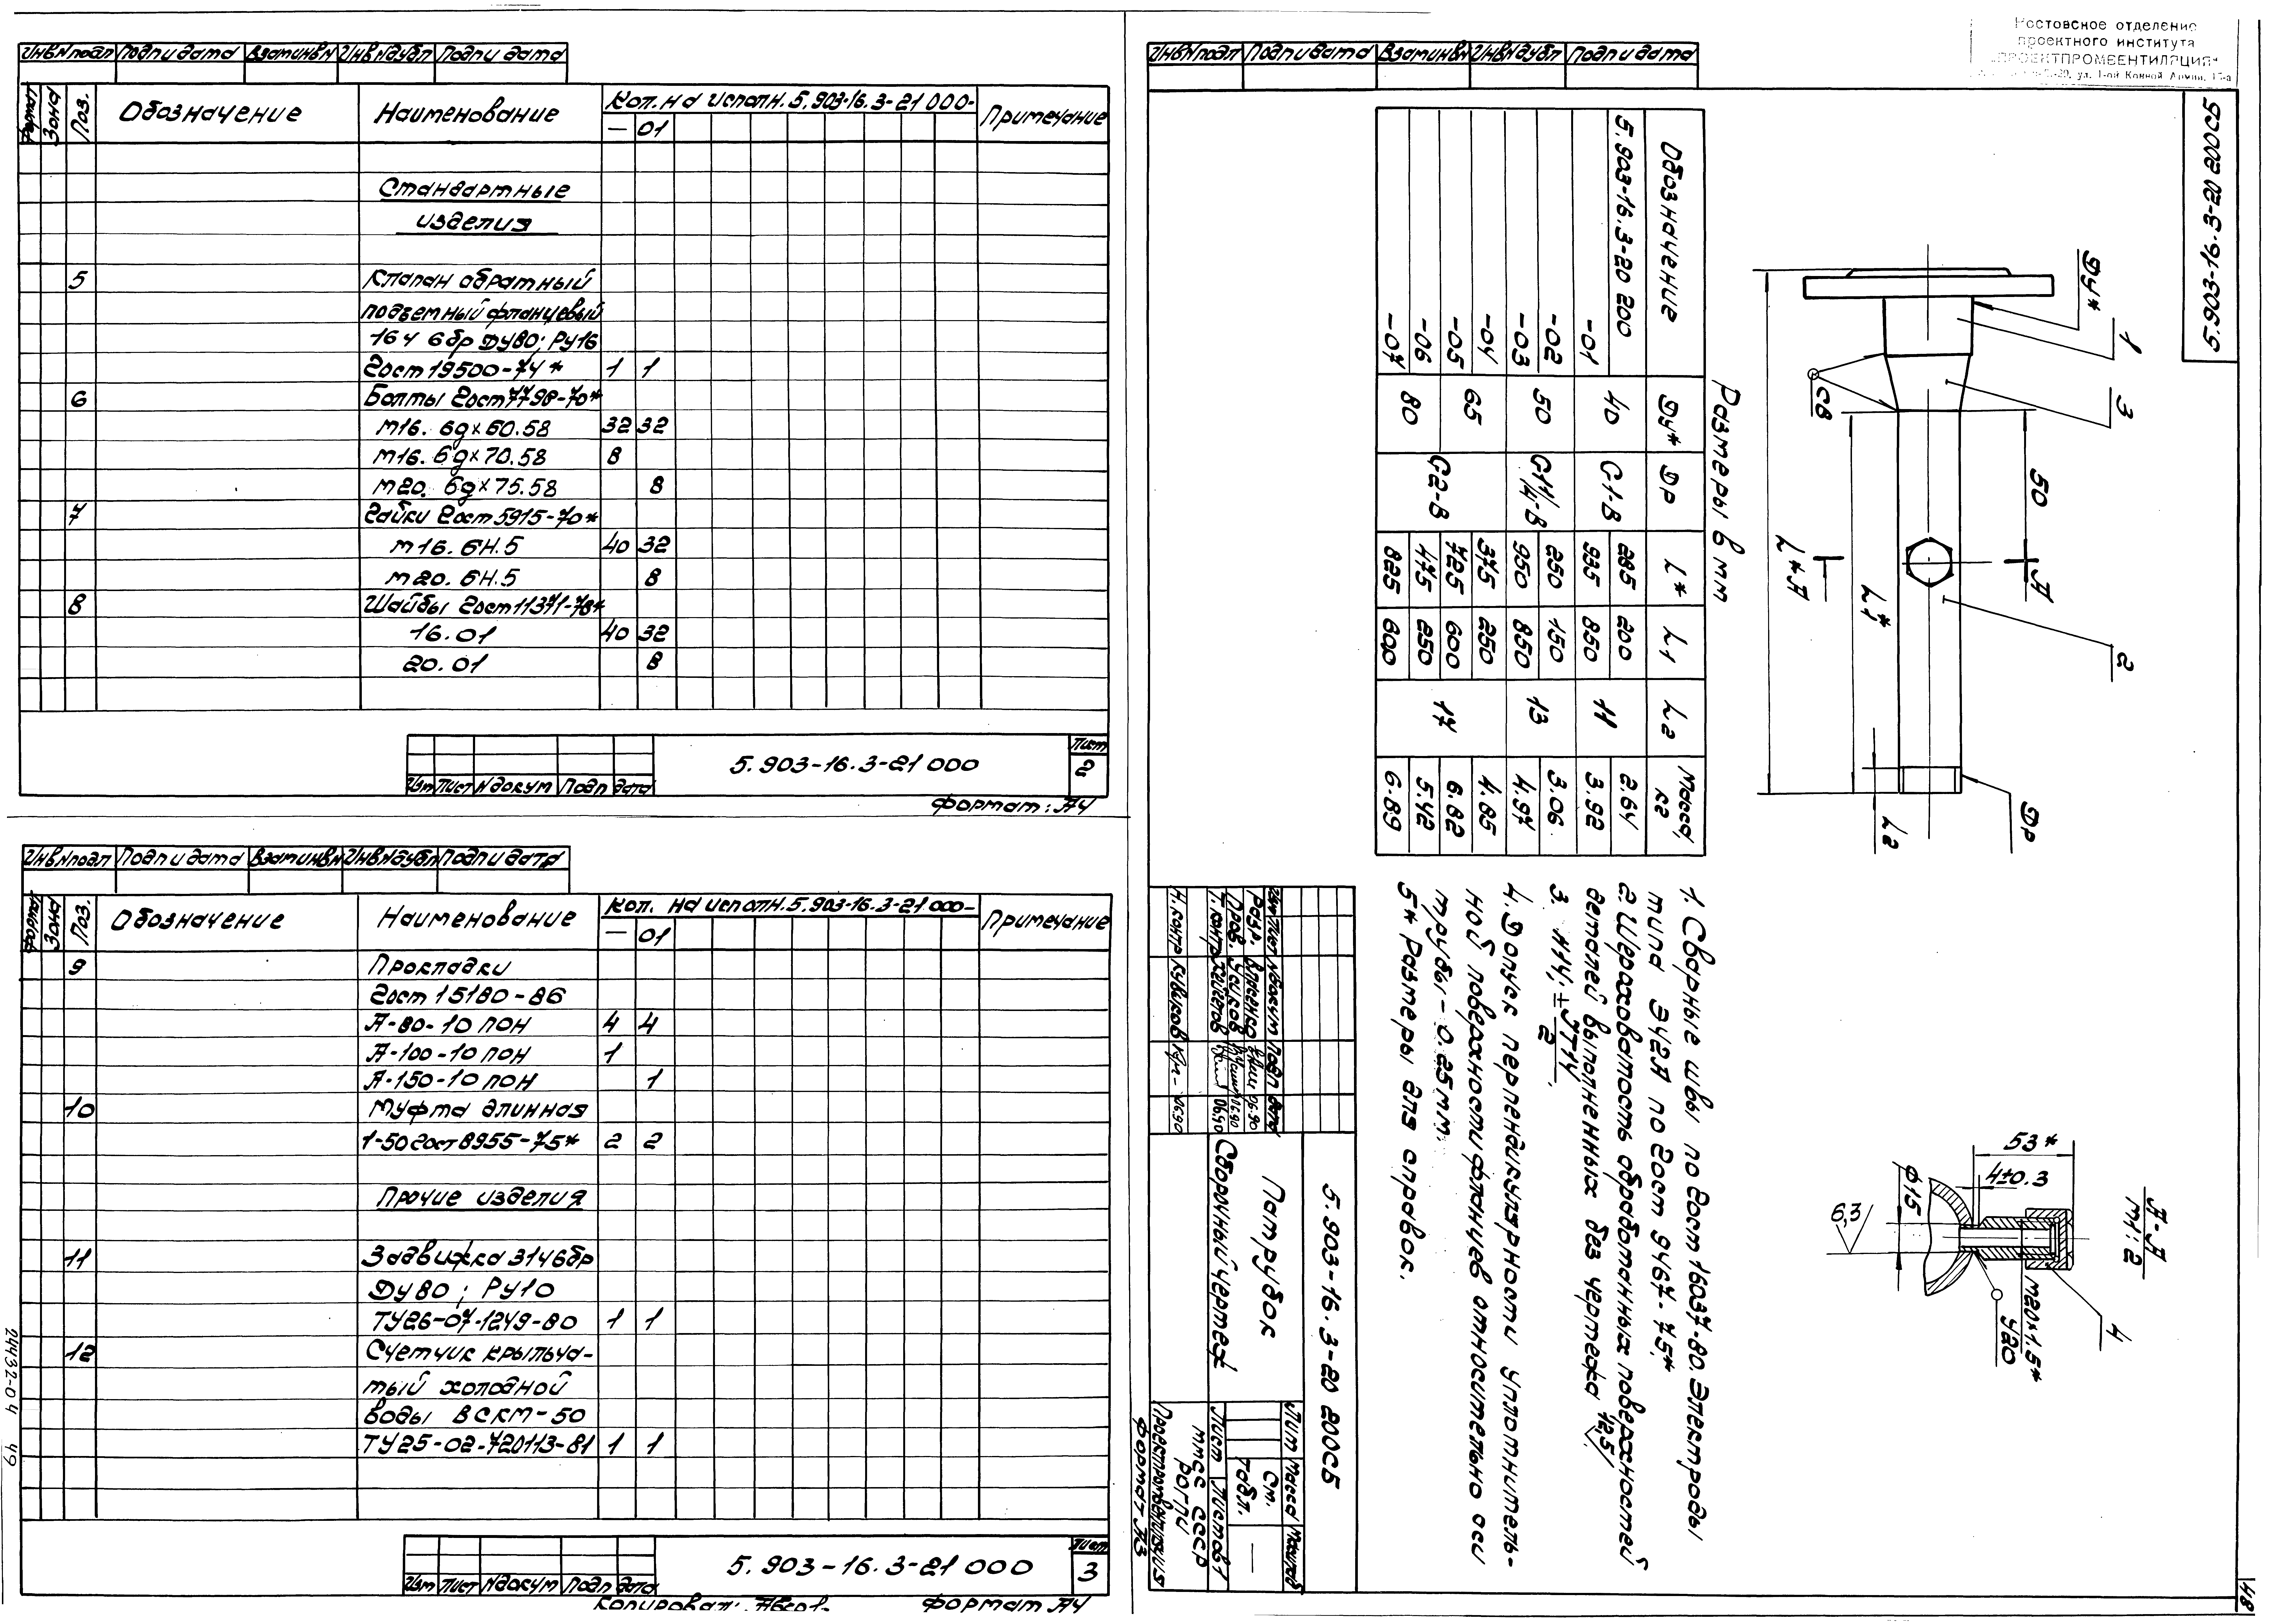 Инв№подл Подп и дата Взам инв№ Инв№дубл Подп и дата
Формат Зона Поз. Обозначение Наименование Кол. на исполн. 5.903-16.3-21 000- Примечание
— 01
Стандартные
изделия
5 Клапан обратный
подъемный фланцевый
16ч 6бр Ду80; Ру16
Гост 19500-74* 1 1
6 Болты Гост 7798-70*
М16. 6g×60.58 32 32
М16. 6g×70.58 8
М20. 6g×75.58 8
7 Гайки Гост 5915-70*
М16. 6Н.5 40 32
М20. 6Н.5 8
8 Шайбы Гост 11371-78*
16.01 40 32
20.01 8
5.903-16.3-21 000
Лист
2
Изм Лист №докум Подп дата
Формат: А4
Инв№подл Подп и дата Взам инв№ Инв№дубл Подп и дата
Формат Зона Поз. Обозначение Наименование Кол. на исполн. 5.903-16.3-21 000- Примечание
— 01
9 Прокладки
Гост 15180-86
А-80-10 ПОН 4 4
А-100-10 ПОН 1
А-150-10 ПОН 1
10 Муфта длинная
1-50 Гост 8955-75* 2 2
Прочие изделия
11 Задвижка 31ч6бр
Ду80; Ру10
ТУ26-07-1249-80 1 1
12 Счетчик крыльча-
тый холодной
воды ВСКМ-50
ТУ25-02-720113-81 1 1
5.903-16.3-21 000
Лист
3
Изм Лист №докум Подп дата
Формат А4
24432-04 49
Инв№подл Подп и дата Взам инв№ Инв№дубл Подп и дата
Ростовское отделение
проектного института
„ПРОЕКТПРОМВЕНТИЛЯЦИЯ"
5.903-16.3-20 200СБ
Ду* 1 3 2
СВ
50
А
L1*
L*А
Др
L2
Размеры в мм
Обозначение Ду* Др L* L1 L2 Масса, кг
5.903-16.3-20 200 40 G1-В 285 200 11 2.64
-01 935 850 3.92
-02 50 G1 1/4-В 250 150 13 3.06
-03 950 850 4.97
-04 65 G2-В 375 250 17 4.85
-05 725 600 6.82
-06 80 475 250 5.42
-07 825 600 6.89
А-А
М1:2
53*
4±0.3
ϕ15
6,3
М20×1,5*
У20
4
1. Сварные швы по Гост 16037-80. Электроды
типа Э42А по Гост 9467-75*.
2. Шероховатость обработанных поверхностей
деталей выполненных без чертежа 12,5
3. Н14; ±JT14/2.
4. Допуск перпендикулярности уплотнитель-
ной поверхности фланцев относительно оси
трубы - 0.25мм.
5* Размеры для справок.
5.903-16.3-20 200СБ
Патрубок
Сборочный чертеж
Лит Масса Масштаб
См. табл. —
Лист Листов 1
ММСС СССР
Проектпромвентиляция
Изм Лист №докум Подп Дата
Разр. 06.90
Пров. Усиков 06.90
Т.контр 06.90
Н.контр 06.90
Формат А3
48